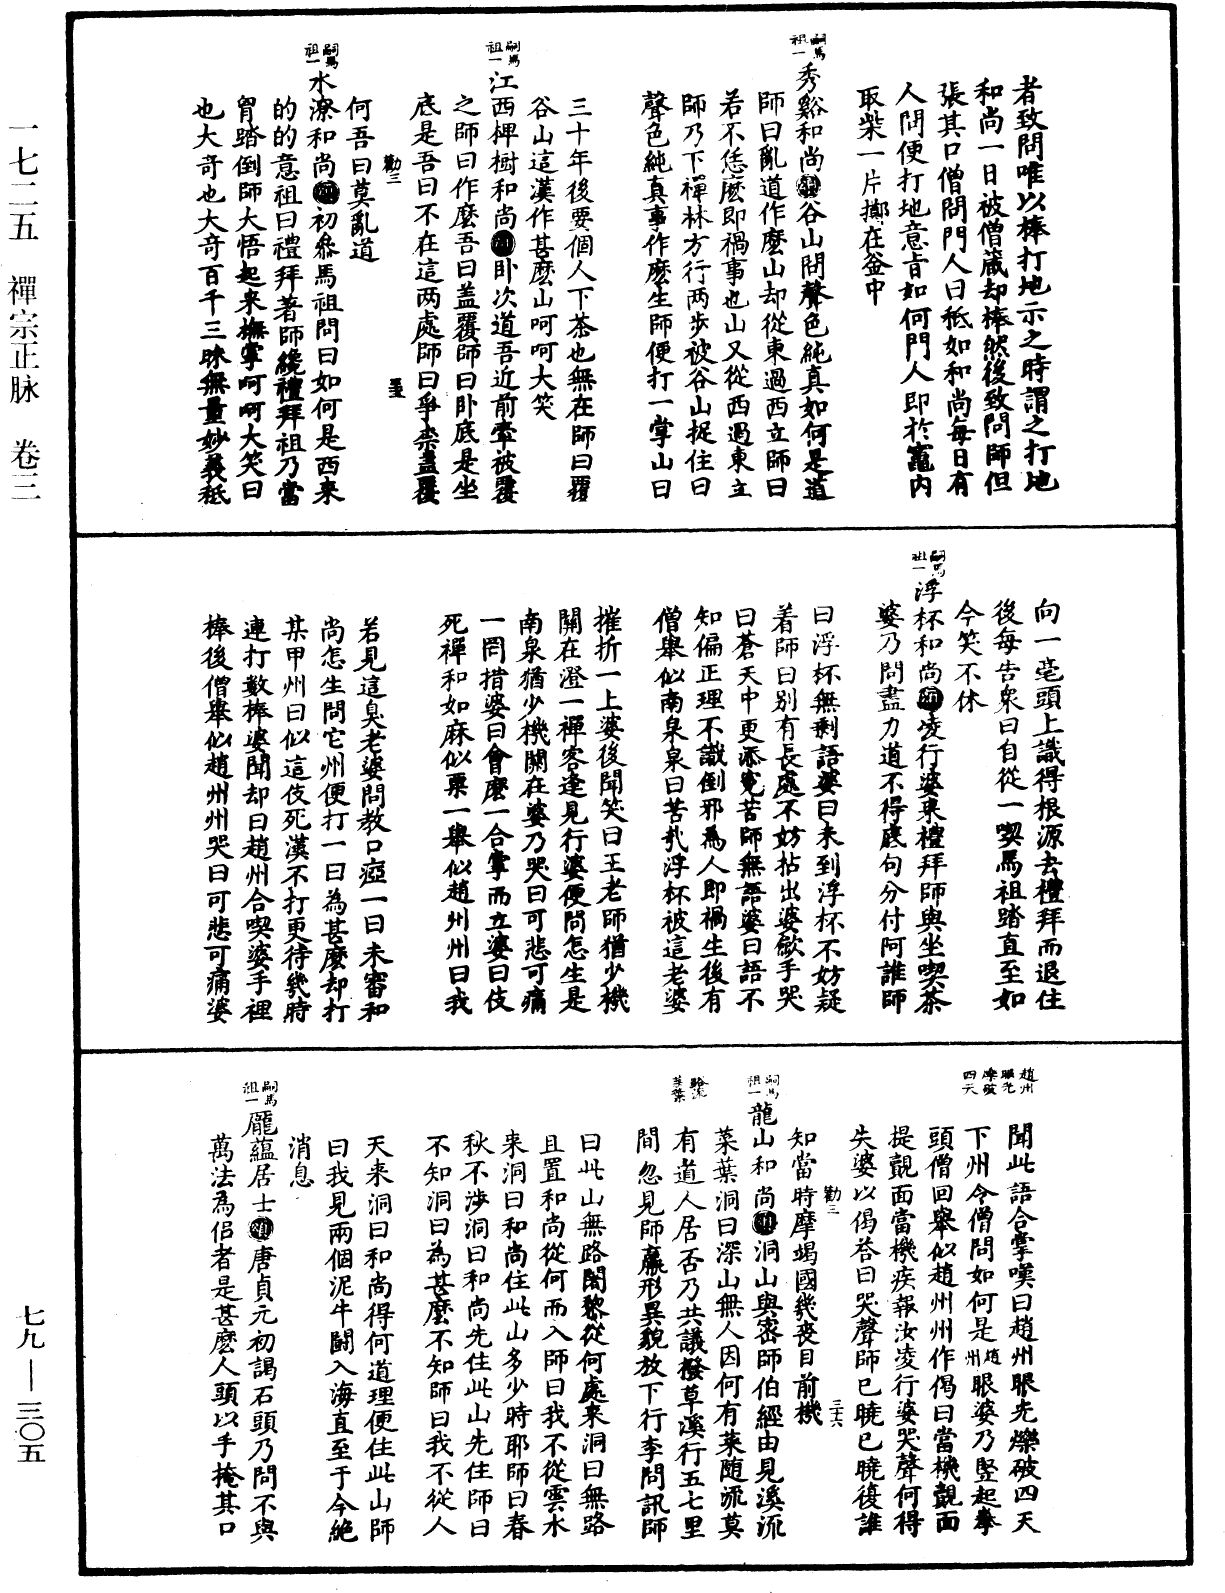 一七二五 禪宗正脉 卷三
者致問唯以棒打地示之時謂之打地
和尚一日被僧藏却棒然後致問師但
張其口僧問門人曰秖如和尚每日有
人問便打地意旨如何門人即於竈內
取柴一片擲在釜中
嗣馬祖一
秀谿和尚谷山問聲色純真如何是道
師曰亂道作麼山却從東過西立師曰
若不恁麼即禍事也山又從西過東立
師乃下禪牀方行两步被谷山捉住曰
聲色純真事作麼生師便打一掌山曰
三十年後要個人下茶也無在師曰覆
谷山這漢作甚麼山呵呵大笑
嗣馬祖一
江西椑樹和尚卧次道吾近前牽被覆
之師曰作麼吾曰盖覆師曰卧底是坐
底是吾曰不在這两處師曰爭柰盖覆
何吾曰莫亂道
勸三
嗣馬祖一
水潦和尚初叅馬祖問曰如何是西来
的的意祖曰禮拜著師纔禮拜祖乃當
胷踏倒師大悟起来撫掌呵呵大笑曰
也大奇也大奇百千三昧無量妙義秖
向一毫頭上識得根源去禮拜而退住
後每告衆曰自從一喫馬祖踏直至如
今笑不休
嗣馬祖一
浮杯和尚凌行婆来禮拜師與坐喫茶
婆乃問盡力道不得底句分付阿誰師
曰浮杯無剩語婆曰未到浮杯不妨疑
着師曰別有長處不妨拈出婆歛手哭
曰蒼天中更添寃苦師無語婆曰語不
知偏正理不識倒邪為人即禍生後有
僧舉似南泉泉曰苦哉浮杯被這老婆
摧折一上婆後聞笑曰王老師猶少機
關在澄一禪客逢見行婆便問怎生是
南泉猶少機關在婆乃哭曰可悲可痛
一罔措婆曰會麼一合掌而立婆曰伎
死禪和如麻似粟一舉似趙州州曰我
若見這臭老婆問教口瘂一曰未審和
尚怎生問它州便打一曰為甚麼却打
某甲州曰似這伎死漢不打更待幾時
連打數棒婆聞却曰趙州合喫婆手裡
棒後僧舉似趙州州哭曰可悲可痛婆
聞此語合掌嘆曰趙州眼光爍破四天
趙州眼光爍破四天
下州令僧問如何是趙州眼婆乃竪起拳
頭僧回舉似趙州州作偈曰當機覿面
提覿面當機疾報汝凌行婆哭聲何得
失婆以偈荅曰哭聲師已曉已曉復誰
知當時摩竭國幾喪目前機
勸三
三十六
嗣馬祖一
龍山和尚洞山與密師伯經由見溪流
菜葉洞曰深山無人因何有菜随流莫
有道人居否乃共議撥草溪行五七里
間忽見師羸形異貌放下行李問訊師
曰此山無路闍黎從何處来洞曰無路
且置和尚從何而入師曰我不從雲水
来洞曰和尚住此山多少時耶師曰春
秋不涉洞曰和尚先住此山先住師曰
不知洞曰為甚麼不知師曰我不從人
天来洞曰和尚得何道理便住此山師
曰我見兩個泥牛鬪入海直至于今絕
消息
嗣馬祖一
龐蘊居士唐貞元初謁石頭乃問不與
萬法為侣者是甚麼人頭以手掩其口
七九—三〇五